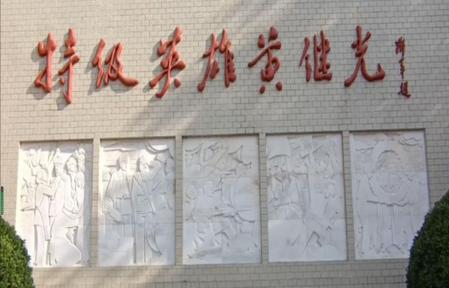 特级英雄黄继光